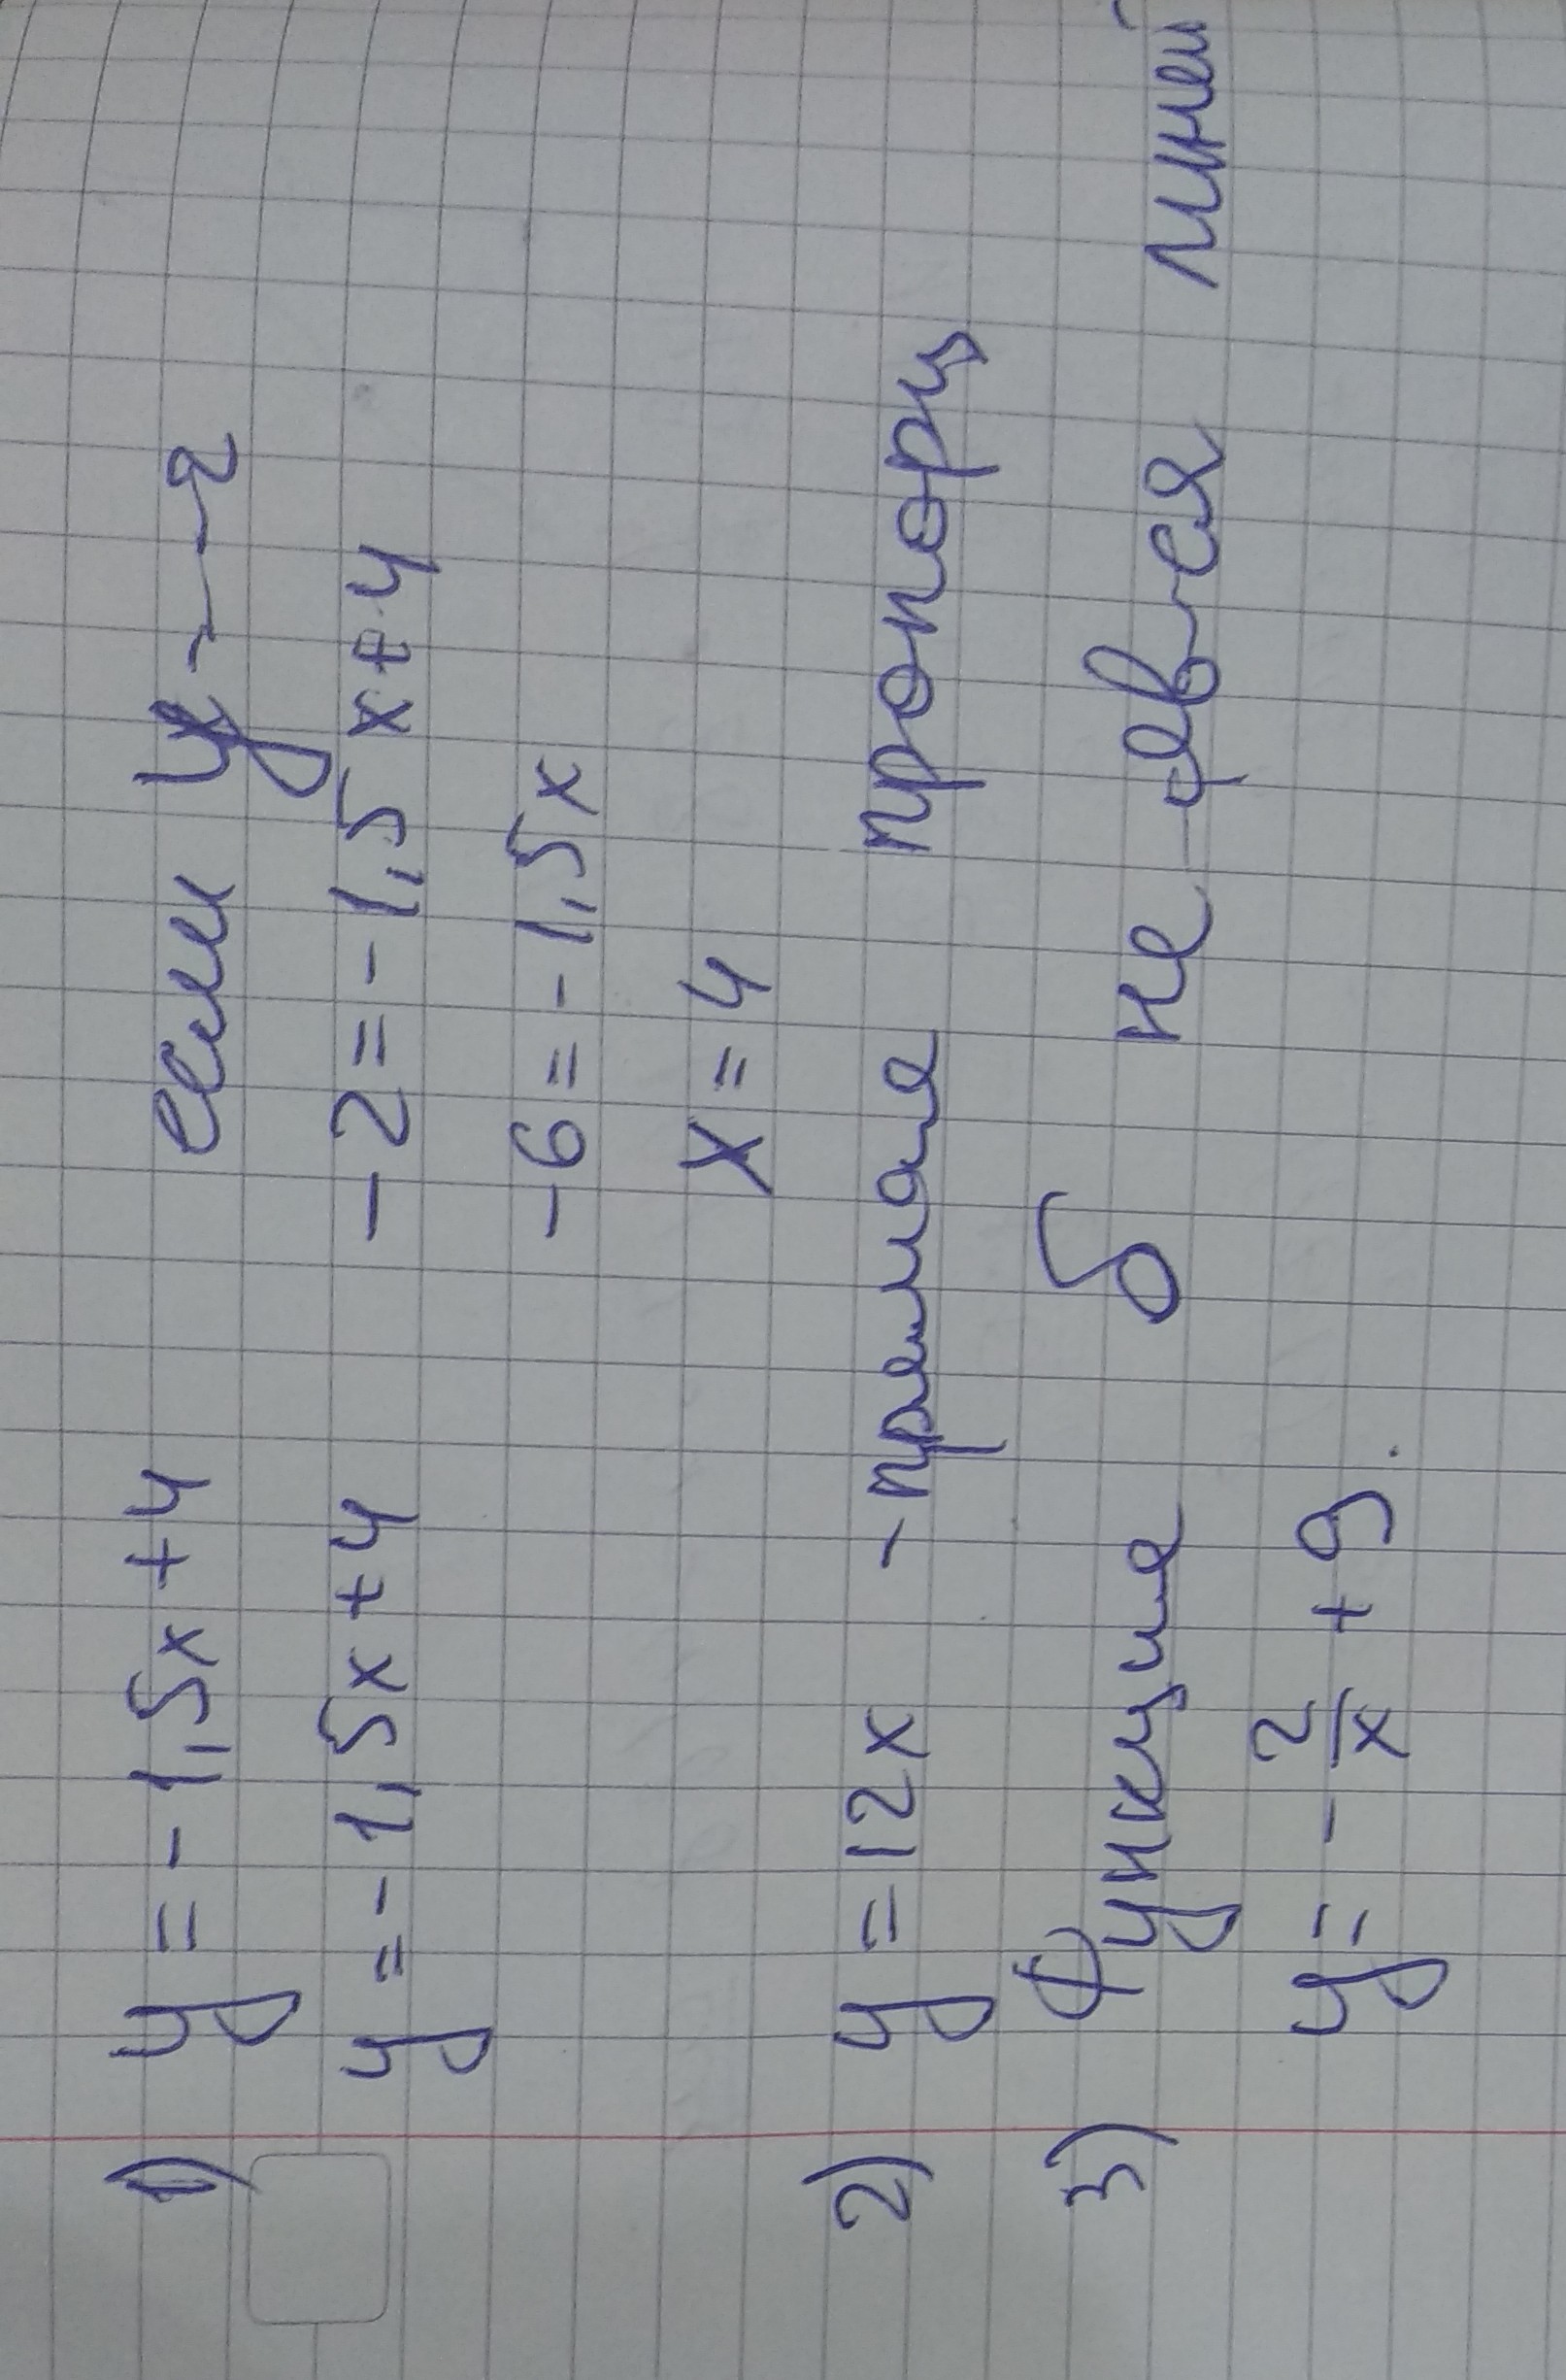 1) y = -1,5x + 4 если y = -2
y = -1,5x + 4 -2 = -1,5x + 4
-6 = -1,5x
x = 4
2) y = 12x - прямая пропорц
3) Функция б не явся линей
y = - 2/x + 9.